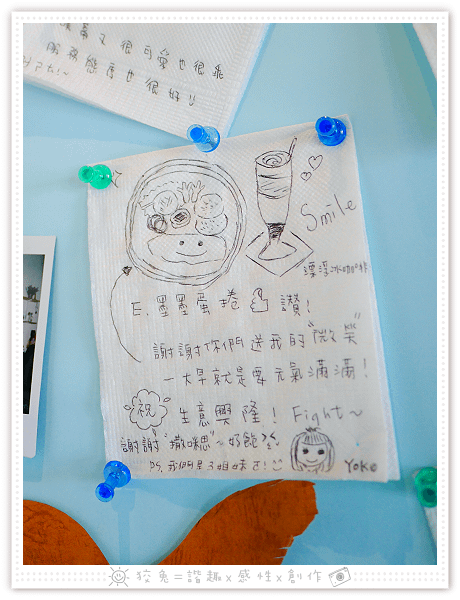 很可愛也很乖
服務態度也很好!!
Smile
漂浮冰咖啡
E. 墨墨蛋捲 讚!
謝謝你們送我的"微笑"
一大早就是要元氣滿滿!
祝 生意興隆! Fight~
謝謝"撒咪思"~好飽
PS. 我們是3姐妹ㄛ!
Yoko
狡兔=諧趣x感性x創作